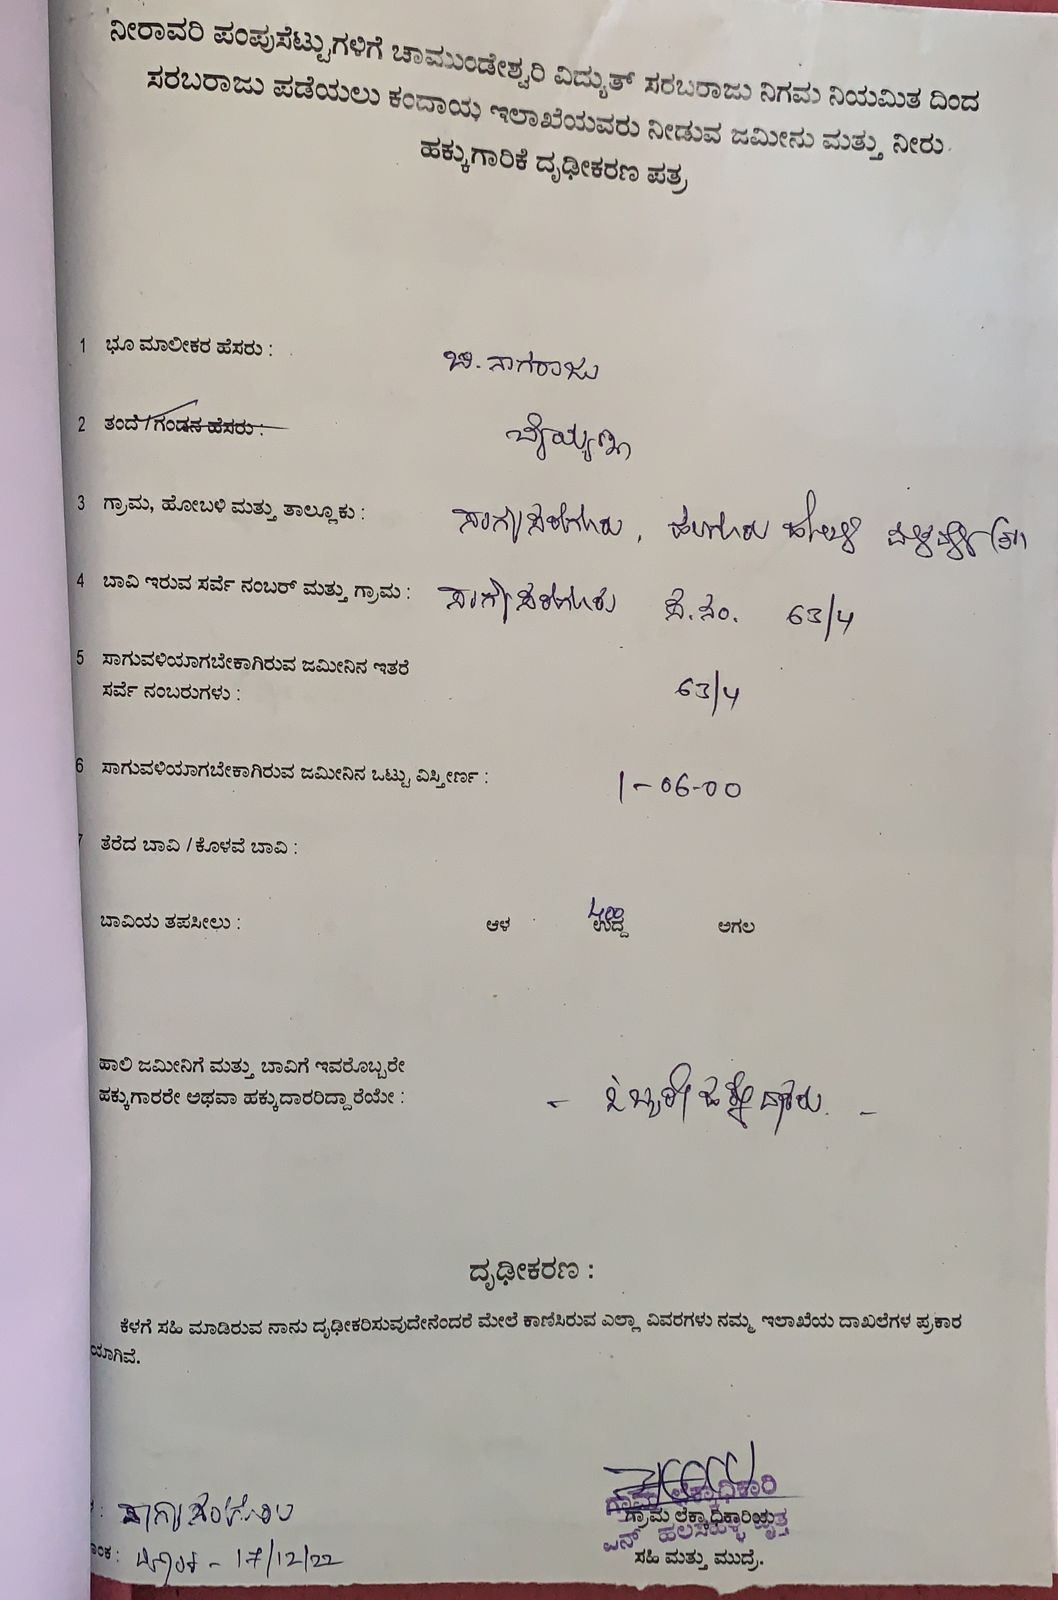 ನೀರಾವರಿ ಪಂಪುಸೆಟ್ಟುಗಳಿಗೆ ಚಾಮುಂಡೇಶ್ವರಿ ವಿದ್ಯುತ್ ಸರಬರಾಜು ನಿಗಮ ನಿಯಮಿತ ದಿಂದ
ಸರಬರಾಜು ಪಡೆಯಲು ಕಂದಾಯ ಇಲಾಖೆಯವರು ನೀಡುವ ಜಮೀನು ಮತ್ತು ನೀರು
ಹಕ್ಕುಗಾರಿಕೆ ದೃಢೀಕರಣ ಪತ್ರ
1 ಭೂ ಮಾಲೀಕರ ಹೆಸರು : ಬಿ. ನಾಗರಾಜು
2 ತಂದೆ / ಗಂಡನ ಹೆಸರು :
3 ಗ್ರಾಮ, ಹೋಬಳಿ ಮತ್ತು ತಾಲ್ಲೂಕು : ಹಲಗೂರು ಹೋಬಳಿ ಮಳವಳ್ಳಿ (ತಾ)
4 ಬಾವಿ ಇರುವ ಸರ್ವೆ ನಂಬರ್ ಮತ್ತು ಗ್ರಾಮ : ಸ.ನಂ. 63/4
5 ಸಾಗುವಳಿಯಾಗಬೇಕಾಗಿರುವ ಜಮೀನಿನ ಇತರೆ
ಸರ್ವೆ ನಂಬರುಗಳು : 63/4
6 ಸಾಗುವಳಿಯಾಗಬೇಕಾಗಿರುವ ಜಮೀನಿನ ಒಟ್ಟು ವಿಸ್ತೀರ್ಣ : 1-06-00
7 ತೆರೆದ ಬಾವಿ / ಕೊಳವೆ ಬಾವಿ :
ಬಾವಿಯ ತಪಸೀಲು : ಆಳ ಉದ್ದ ಅಗಲ
ಹಾಲಿ ಜಮೀನಿಗೆ ಮತ್ತು ಬಾವಿಗೆ ಇವರೊಬ್ಬರೇ
ಹಕ್ಕುಗಾರರೇ ಅಥವಾ ಹಕ್ಕುದಾರರಿದ್ದಾರೆಯೇ : - ಒಬ್ಬರೇ ಹಕ್ಕುದಾರರು. -
ದೃಢೀಕರಣ :
ಕೆಳಗೆ ಸಹಿ ಮಾಡಿರುವ ನಾನು ದೃಢೀಕರಿಸುವುದೇನೆಂದರೆ ಮೇಲೆ ಕಾಣಿಸಿರುವ ಎಲ್ಲಾ ವಿವರಗಳು ನಮ್ಮ ಇಲಾಖೆಯ ದಾಖಲೆಗಳ ಪ್ರಕಾರ
ಯಾಗಿವೆ.
ಗ್ರಾಮ ಲೆಕ್ಕಾಧಿಕಾರಿ
ಗ್ರಾಮ ಲೆಕ್ಕಾಧಿಕಾರಿಯ
17/12/22
ಸಹಿ ಮತ್ತು ಮುದ್ರೆ.